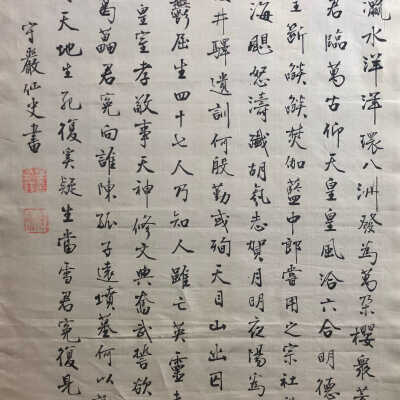 瀛水洋洋環八洲發為萬朶櫻衆芳
君臨萬古仰天皇皇風洽六合明德
主斷燄燄焚伽藍中郎嘗用之宗社
海颶怒濤殲胡氛志賀月明夜陽為
井驛遺訓何殷勤或殉天目山幽囚
鬱屈生四十七人乃知人雖亡英靈未
皇室孝敬事天神修文與奮武誓欲
葛藟君冤向誰陳孤子遠墳墓何以
天地生死復奚疑生當雪君冤復見
守嚴仙史書